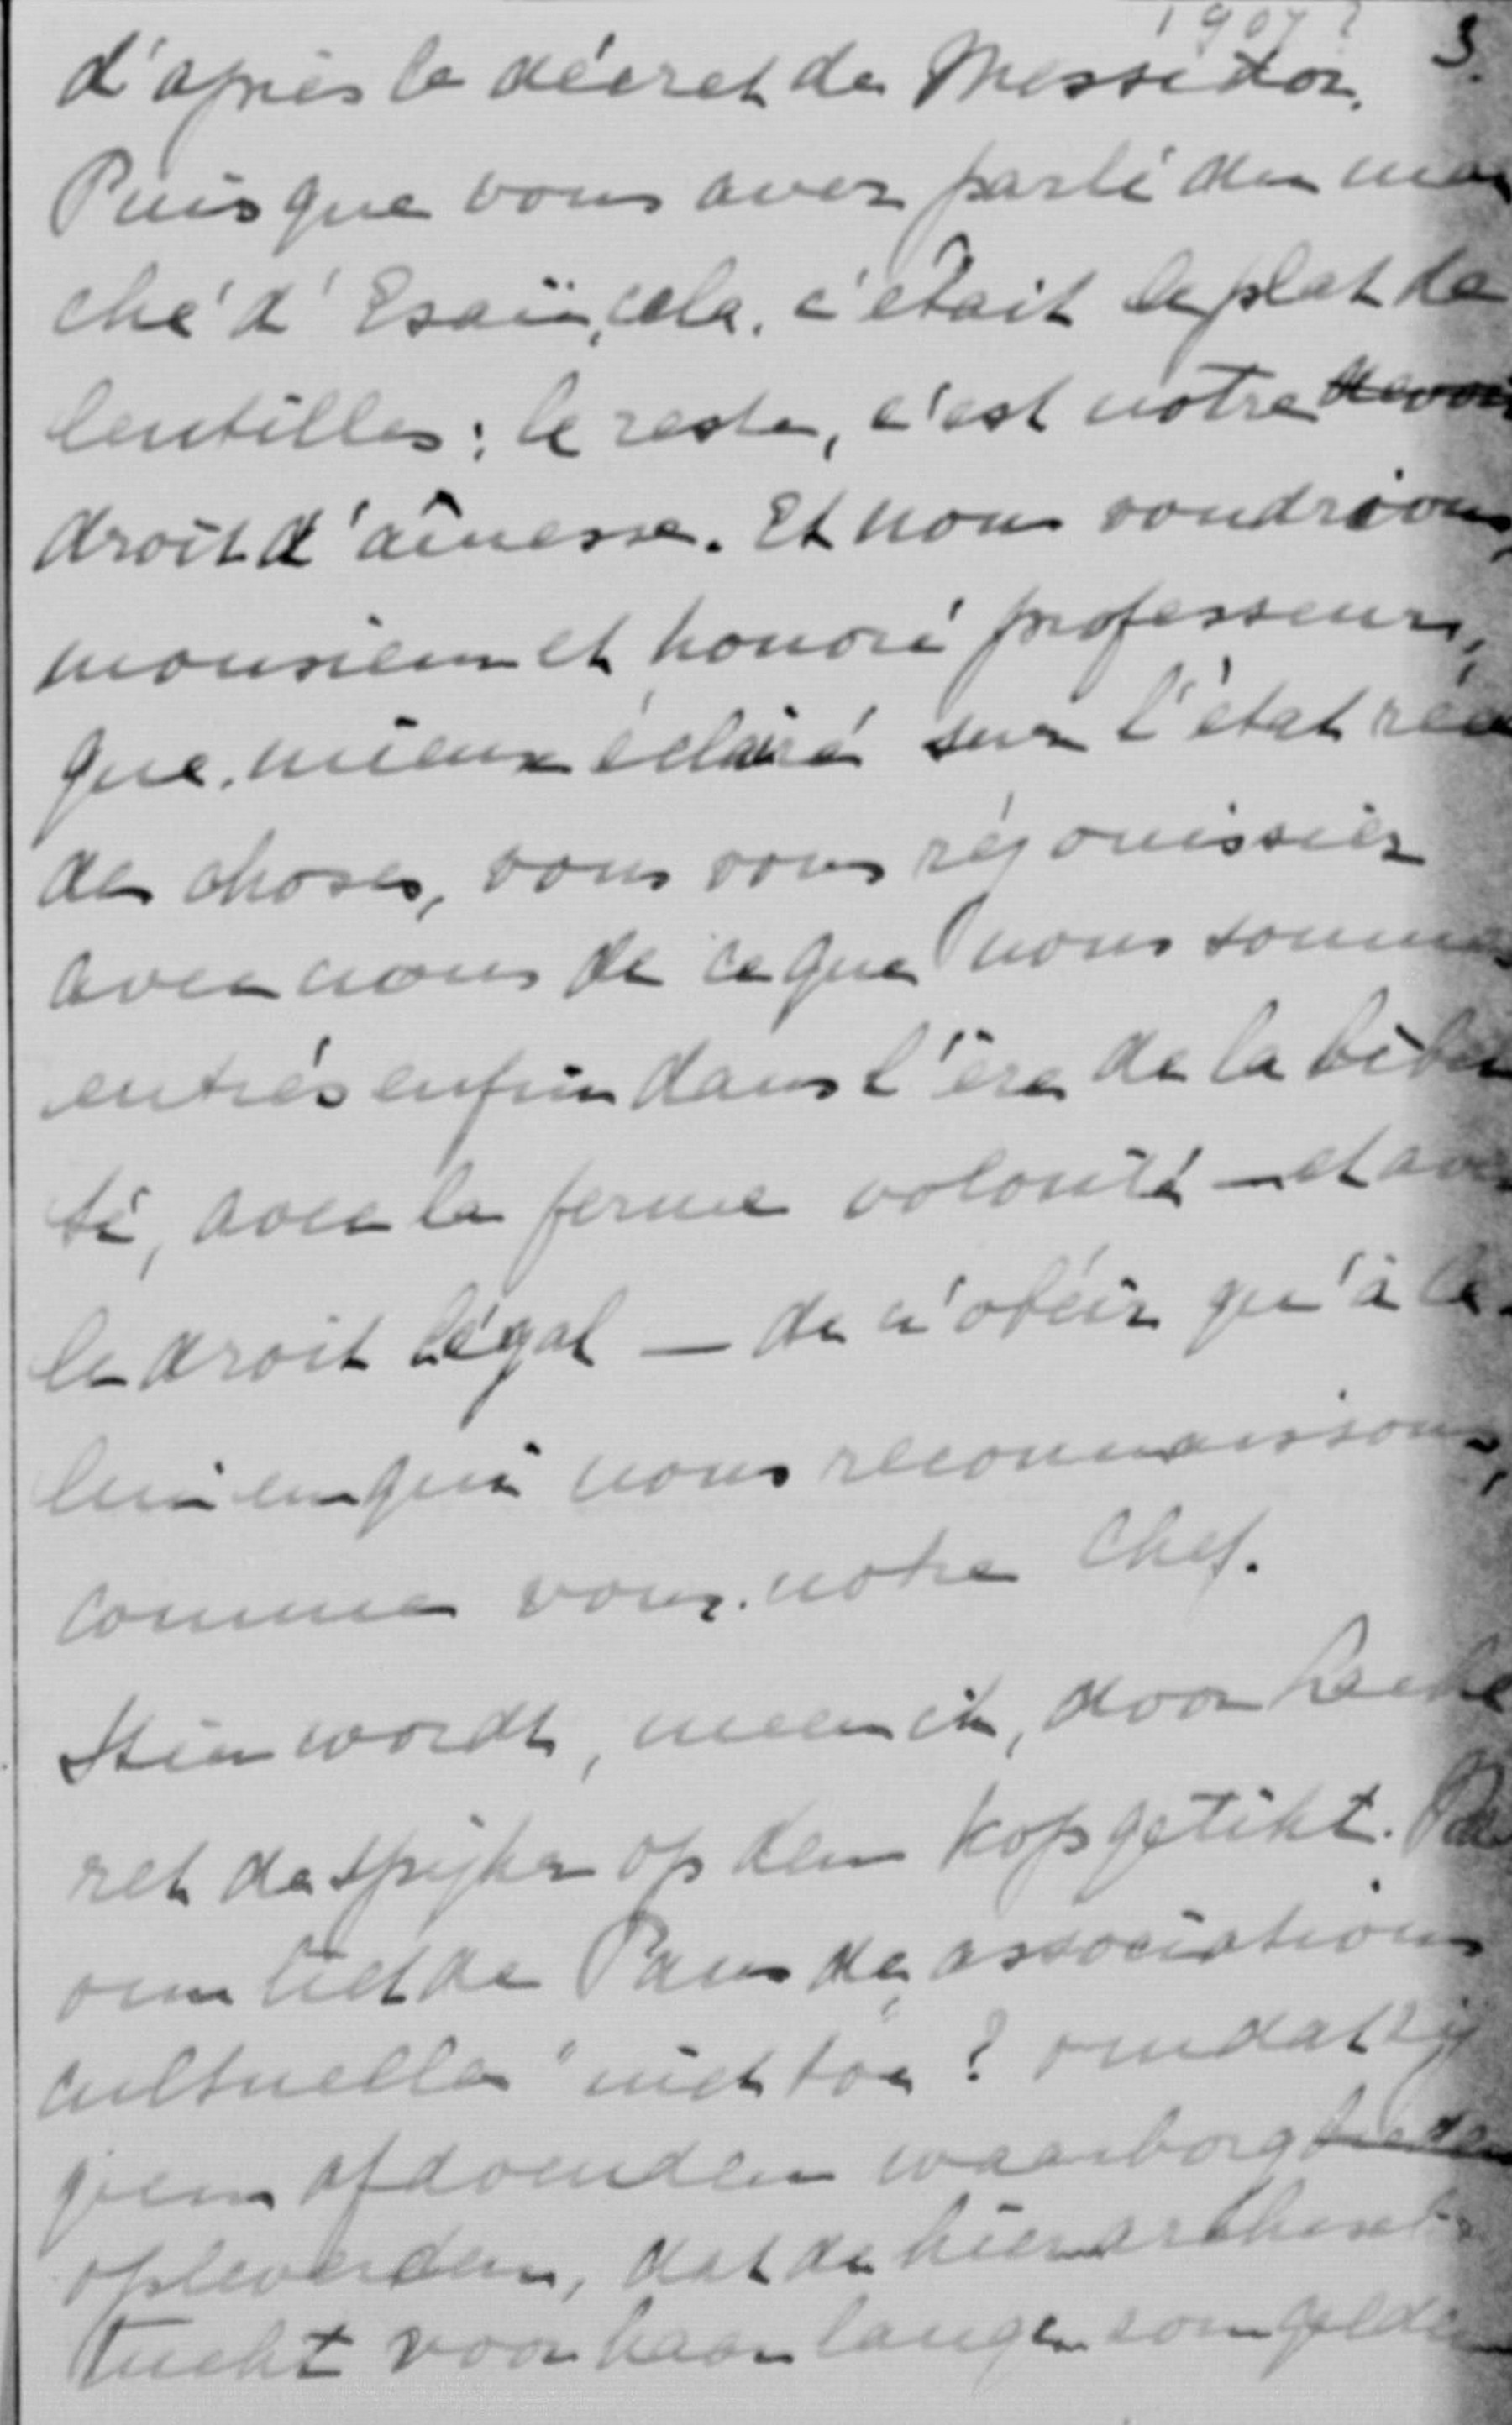 1907? 3.
d'après le décret de Messidor.
Puisque vous avez parlé du mar
ché d'Esaü, cela, c'était le plat de
lentilles; le reste, c'est notre devoir
droit d'aînesse. Et nous voudrions,
monsieur et honoré professeur,
que, mieux éclairé sur l'état réel
des choses, vous vous réjouissiez
avec nous de ce que nous sommes
entrés enfin dans l'ère de la liber
té, avec la ferme volonté — et avec
le droit légal — de n'obéir qu'à ce
lui en qui nous reconnaissons,
comme vous, notre Chef.
Hier wordt, meen ik, door
ret de spijker op den kop getikt.
om liet de Paus de „associations
cultuelles" niet toe? omdat zij
geen afdoenden waarborg
opleverden, dat de hierarchische
tucht voor haar langer zou gelden